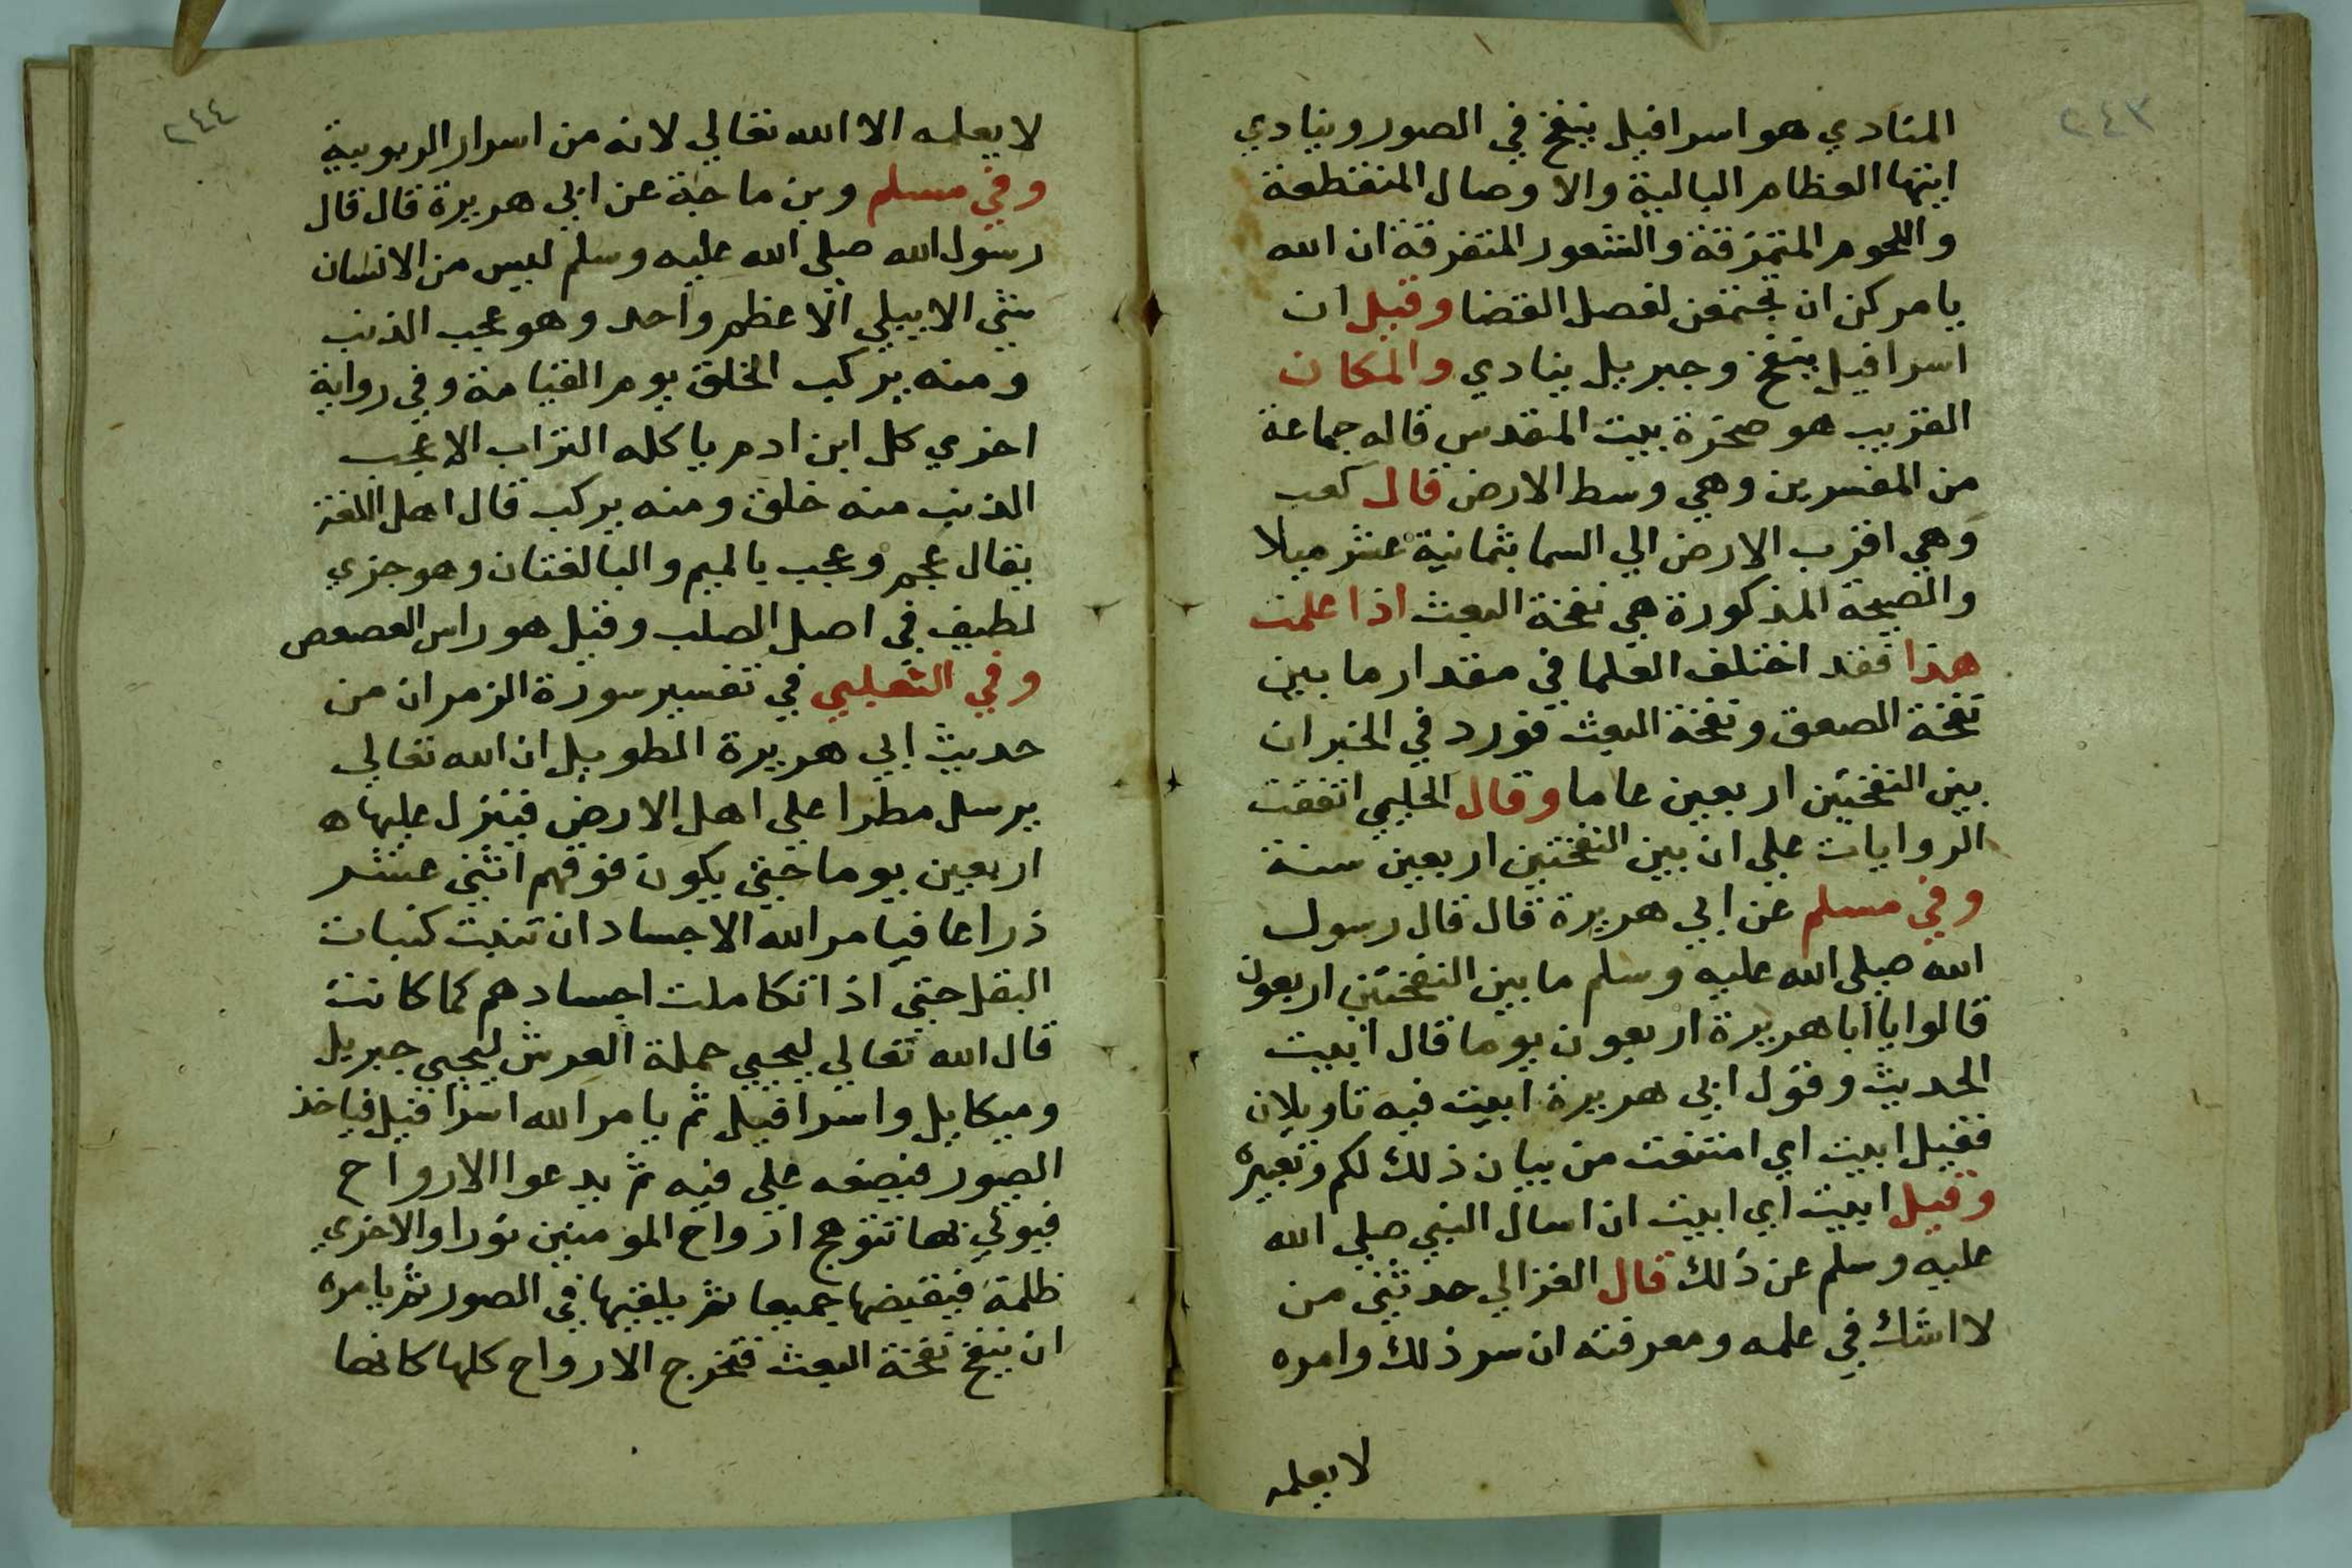 ٢٤٣
المنادي هو اسرافيل ينفخ في الصور وينادي
ايتها العظام البالية والاوصال المتقطعة
واللحوم المتمزقة والشعور المتفرقة ان الله
يامركن ان تجتمعن لفصل القضا وقيل ان
اسرافيل ينفخ وجبريل ينادي والمكان
القريب هو صخرة بيت المقدس قاله جماعة
من المفسرين وهي وسط الارض قال كعب
وهي اقرب الارض الي السما بثمانية عشر ميلا
والصيحة المذكورة هي نفخة البعث اذا علمت
هذا فقد اختلف العلما في مقدار ما بين
نفخة الصعق ونفخة البعث فورد في الخبر ان
بين النفختين اربعين عاما وقال الحليمي اتفقت
الروايات علي ان بين النفختين اربعين سنة
وفي مسلم عن ابي هريرة قال قال رسول
الله صلي الله عليه وسلم ما بين النفختين اربعون
قالوا يا ابا هريرة اربعون يوما قال ابيت
الحديث وقول ابي هريرة ابيت فيه تاويلان
فقيل ابيت اي امتنعت من بيان ذلك لكم وتعبيره
وقيل ابيت اي ابيت ان اسال النبي صلي الله
عليه وسلم عن ذلك قال الغزالي حدثني من
لا اشك في علمه ومعرفته ان سر ذلك وامره
لا يعلمه
٢٤٤
لا يعلمه الا الله تعالي لانه من اسرار الربوبية
وفي مسلم وبن ماجة عن ابي هريرة قال قال
رسول الله صلي الله عليه وسلم ليس من الانسان
شئي الا يبلي الا عظم واحد وهو عجب الذنب
ومنه يركب الخلق يوم القيامة وفي رواية
اخري كل ابن ادم ياكله التراب الا عجب
الذنب منه خلق ومنه يركب قال اهل اللغة
يقال عجم وعجب بالميم والبا لغتان وهو جزي
لطيف في اصل الصلب وقيل هو راس العصعص
وفي الثعلبي في تفسير سورة الزمر ان من
حديث ابي هريرة الطويل ان الله تعالي
يرسل مطرا علي اهل الارض فينزل عليها ه
اربعين يوما حتي يكون فوقهم اثني عشر
ذراعا فيامر الله الاجساد ان تنبت كنبات
البقل حتي اذا تكاملت اجسادهم كما كانت
قال الله تعالي ليحيي حملة العرش ليحيي جبريل
وميكايل واسرافيل ثم يامر الله اسرافيل فياخذ
الصور فيضعه علي فيه ثم يدعوا الارواح
فيوتي بها تتوهج ارواح المومنين نورا والاخري
ظلمة فيقبضها جميعا ثم يلقيها في الصور ثم يامره
ان ينفخ نفخة البعث فتخرج الارواح كلها كانها